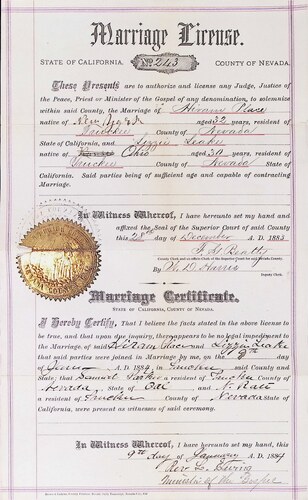 Marriage License.
STATE OF CALIFORNIA. No. 243 COUNTY OF NEVADA.
These Presents are to authorize and license any Judge, Justice of
the Peace, Priest or Minister of the Gospel of any denomination, to solemnize
within said County, the marriage of Hiram
native of New York aged 32 years, resident of
Truckee County of Nevada
State of California, and Lizzie Leake
native of Ohio aged 30 years, resident of
Truckee County of Nevada State of
California. Said parties being of sufficient age and capable of contracting
Marriage.
In Witness Whereof, I have hereunto set my hand and
affixed the Seal of the Superior Court of said County
this 28th day of December A. D. 1883
Beatty
County Clerk and ex-officio Clerk of the Superior Court in and for said Nevada County.
By W. D. Harris
Deputy Clerk.
Marriage Certificate.
STATE OF CALIFORNIA, COUNTY OF NEVADA.
I Hereby Certify, That I believe the facts stated in the above license
to be true, and that upon due inquiry, there appears to be no legal impediment to
the Marriage, of said Hiram and Lizzie Leake
that said parties were joined in Marriage by me, on the 9th day
of A.D. 1884 in Truckee said County and
State; that Samuel a resident of Truckee County of
Nevada State of Cal and N.
a resident of Truckee County of Nevada State of
California, were present as witnesses of said ceremony.
In Witness Whereof, I have hereunto set my hand, this
9th day of January A. D. 1884
Rev.
Minister of the Gospel